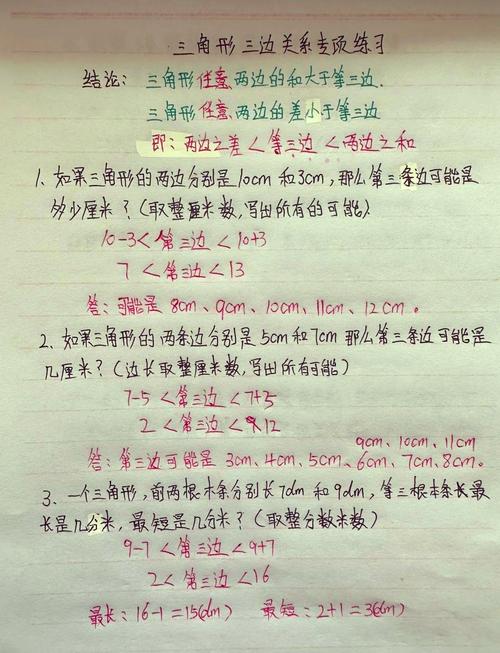 三角形三边关系专项练习
结论：三角形任意两边的和大于第三边.
三角形任意两边的差小于第三边
即：两边之差＜第三边＜两边之和
1、如果三角形的两边分别是10cm和3cm，那么第三条边可能是
多少厘米？（取整厘米数，写出所有的可能）
10-3＜第三边＜10+3
7＜第三边＜13
答：可能是 8cm、9cm、10cm、11cm、12cm。
2、如果三角形的两条边分别是5cm和7cm 那么第三条边可能是
几厘米？（边长取整厘米数，写出所有可能）
7-5＜第三边＜7+5
2＜第三边＜12
9cm、10cm、11cm
答：第三边可能是 3cm、4cm、5cm、6cm、7cm、8cm。
3、一个三角形，前两根木条分别长7dm和9dm，第三根木条长最
长是几分米，最短是几分米？（取整分数米数）
9-7＜第三边＜9+7
2＜第三边＜16
最长：16-1=15(dm) 最短：2+1=3(dm)